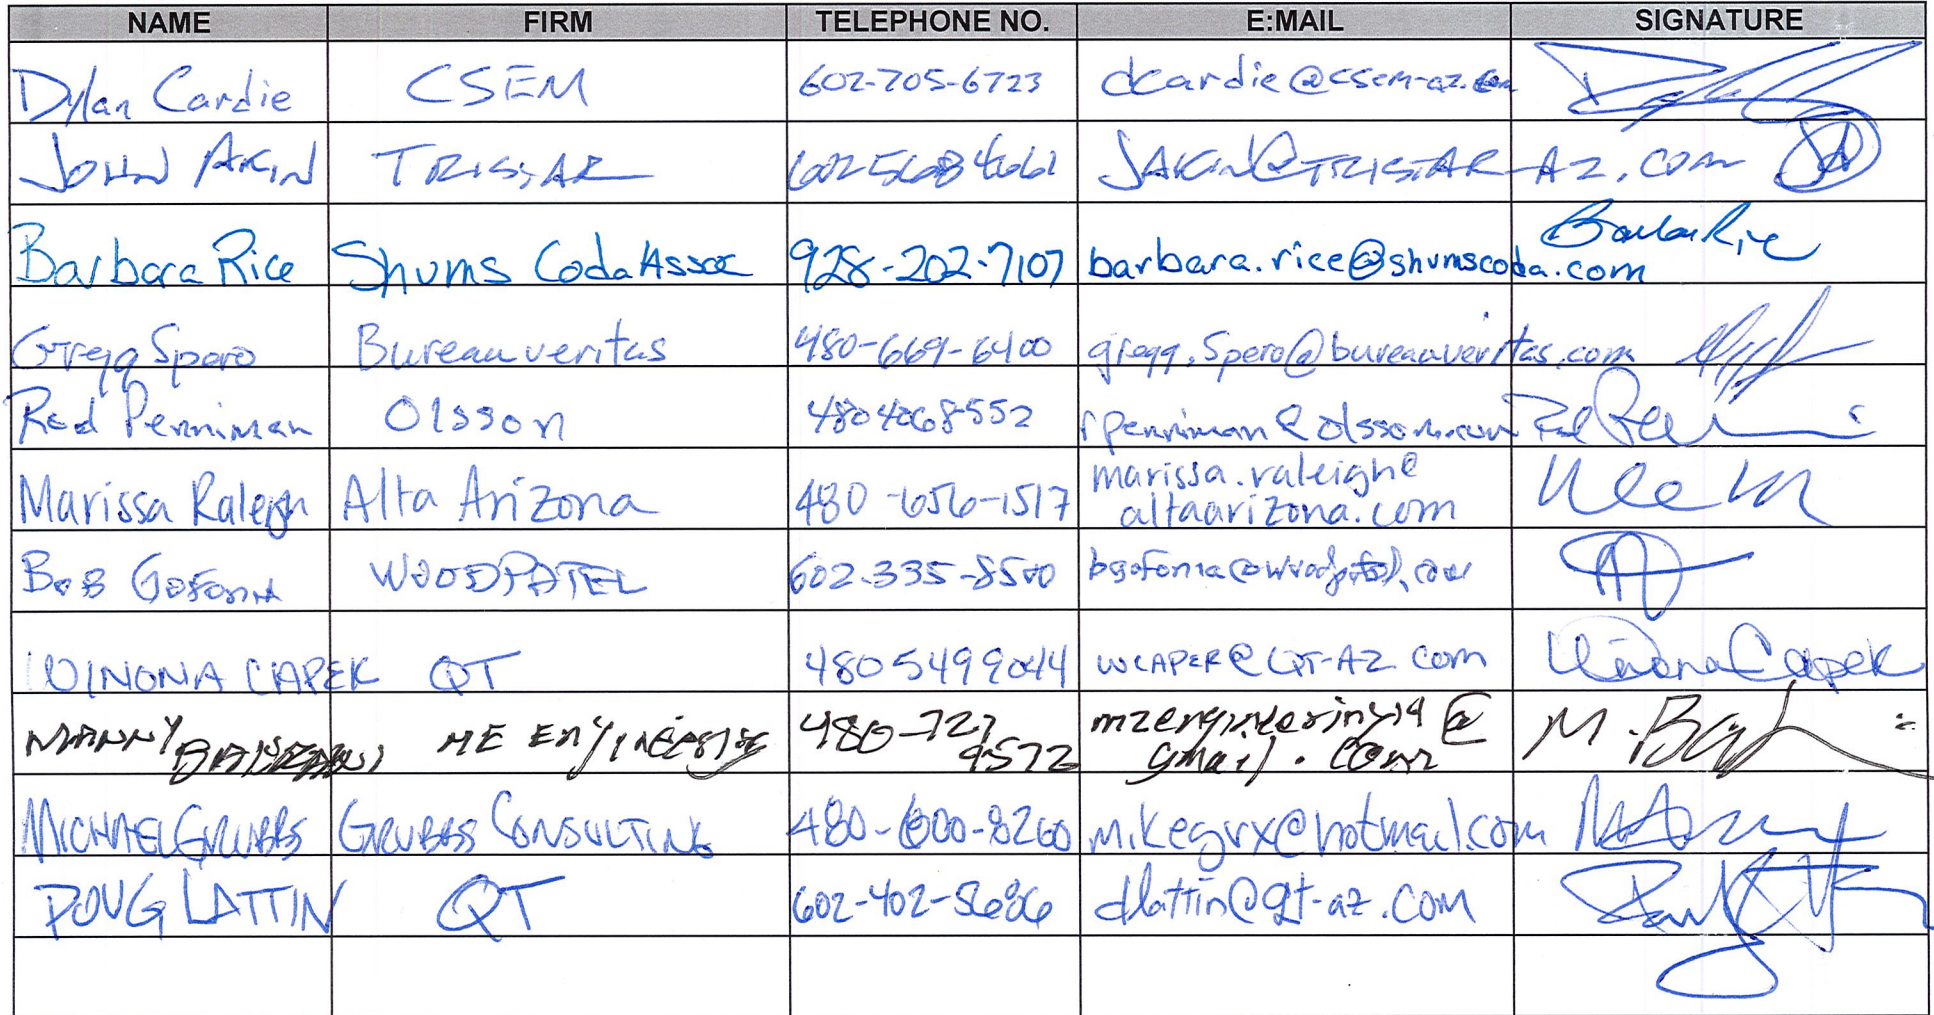 NAME FIRM TELEPHONE NO. E:MAIL SIGNATURE
Dylan Cardie CSEM 602-705-6723 dcardie@csem-az.com
JOHN AKIN TRISTAR 602 568 4661 JAKIN@TRISTAR-AZ.COM
Barbara Rice Shums Coda Assoc 928-202-7107 barbara.rice@shumscoda.com Barbara Rice
Gregg Spero Bureau veritas 480-669-6400 gregg.spero@bureauveritas.com
Rod Penniman Olsson 480 4068552 rpenniman@olsson.com
Marissa Raleigh Alta Arizona 480-656-1517 marissa.raleigh@
altaarizona.com
BOB WOODPATEL 602.335-8500
WINONA CAPEK QT 480 549 9044 WCAPEK@QT-AZ.COM Winona Capek
MANNY ME Engineering 480-727 mzengineering14@
9572 gmail.com M.
MICHAEL GRUBBS GRUBBS CONSULTING 480-600-8260 mikegrx@hotmail.com
DOUG LATTIN QT 602-402-5686 dlattin@qt-az.com